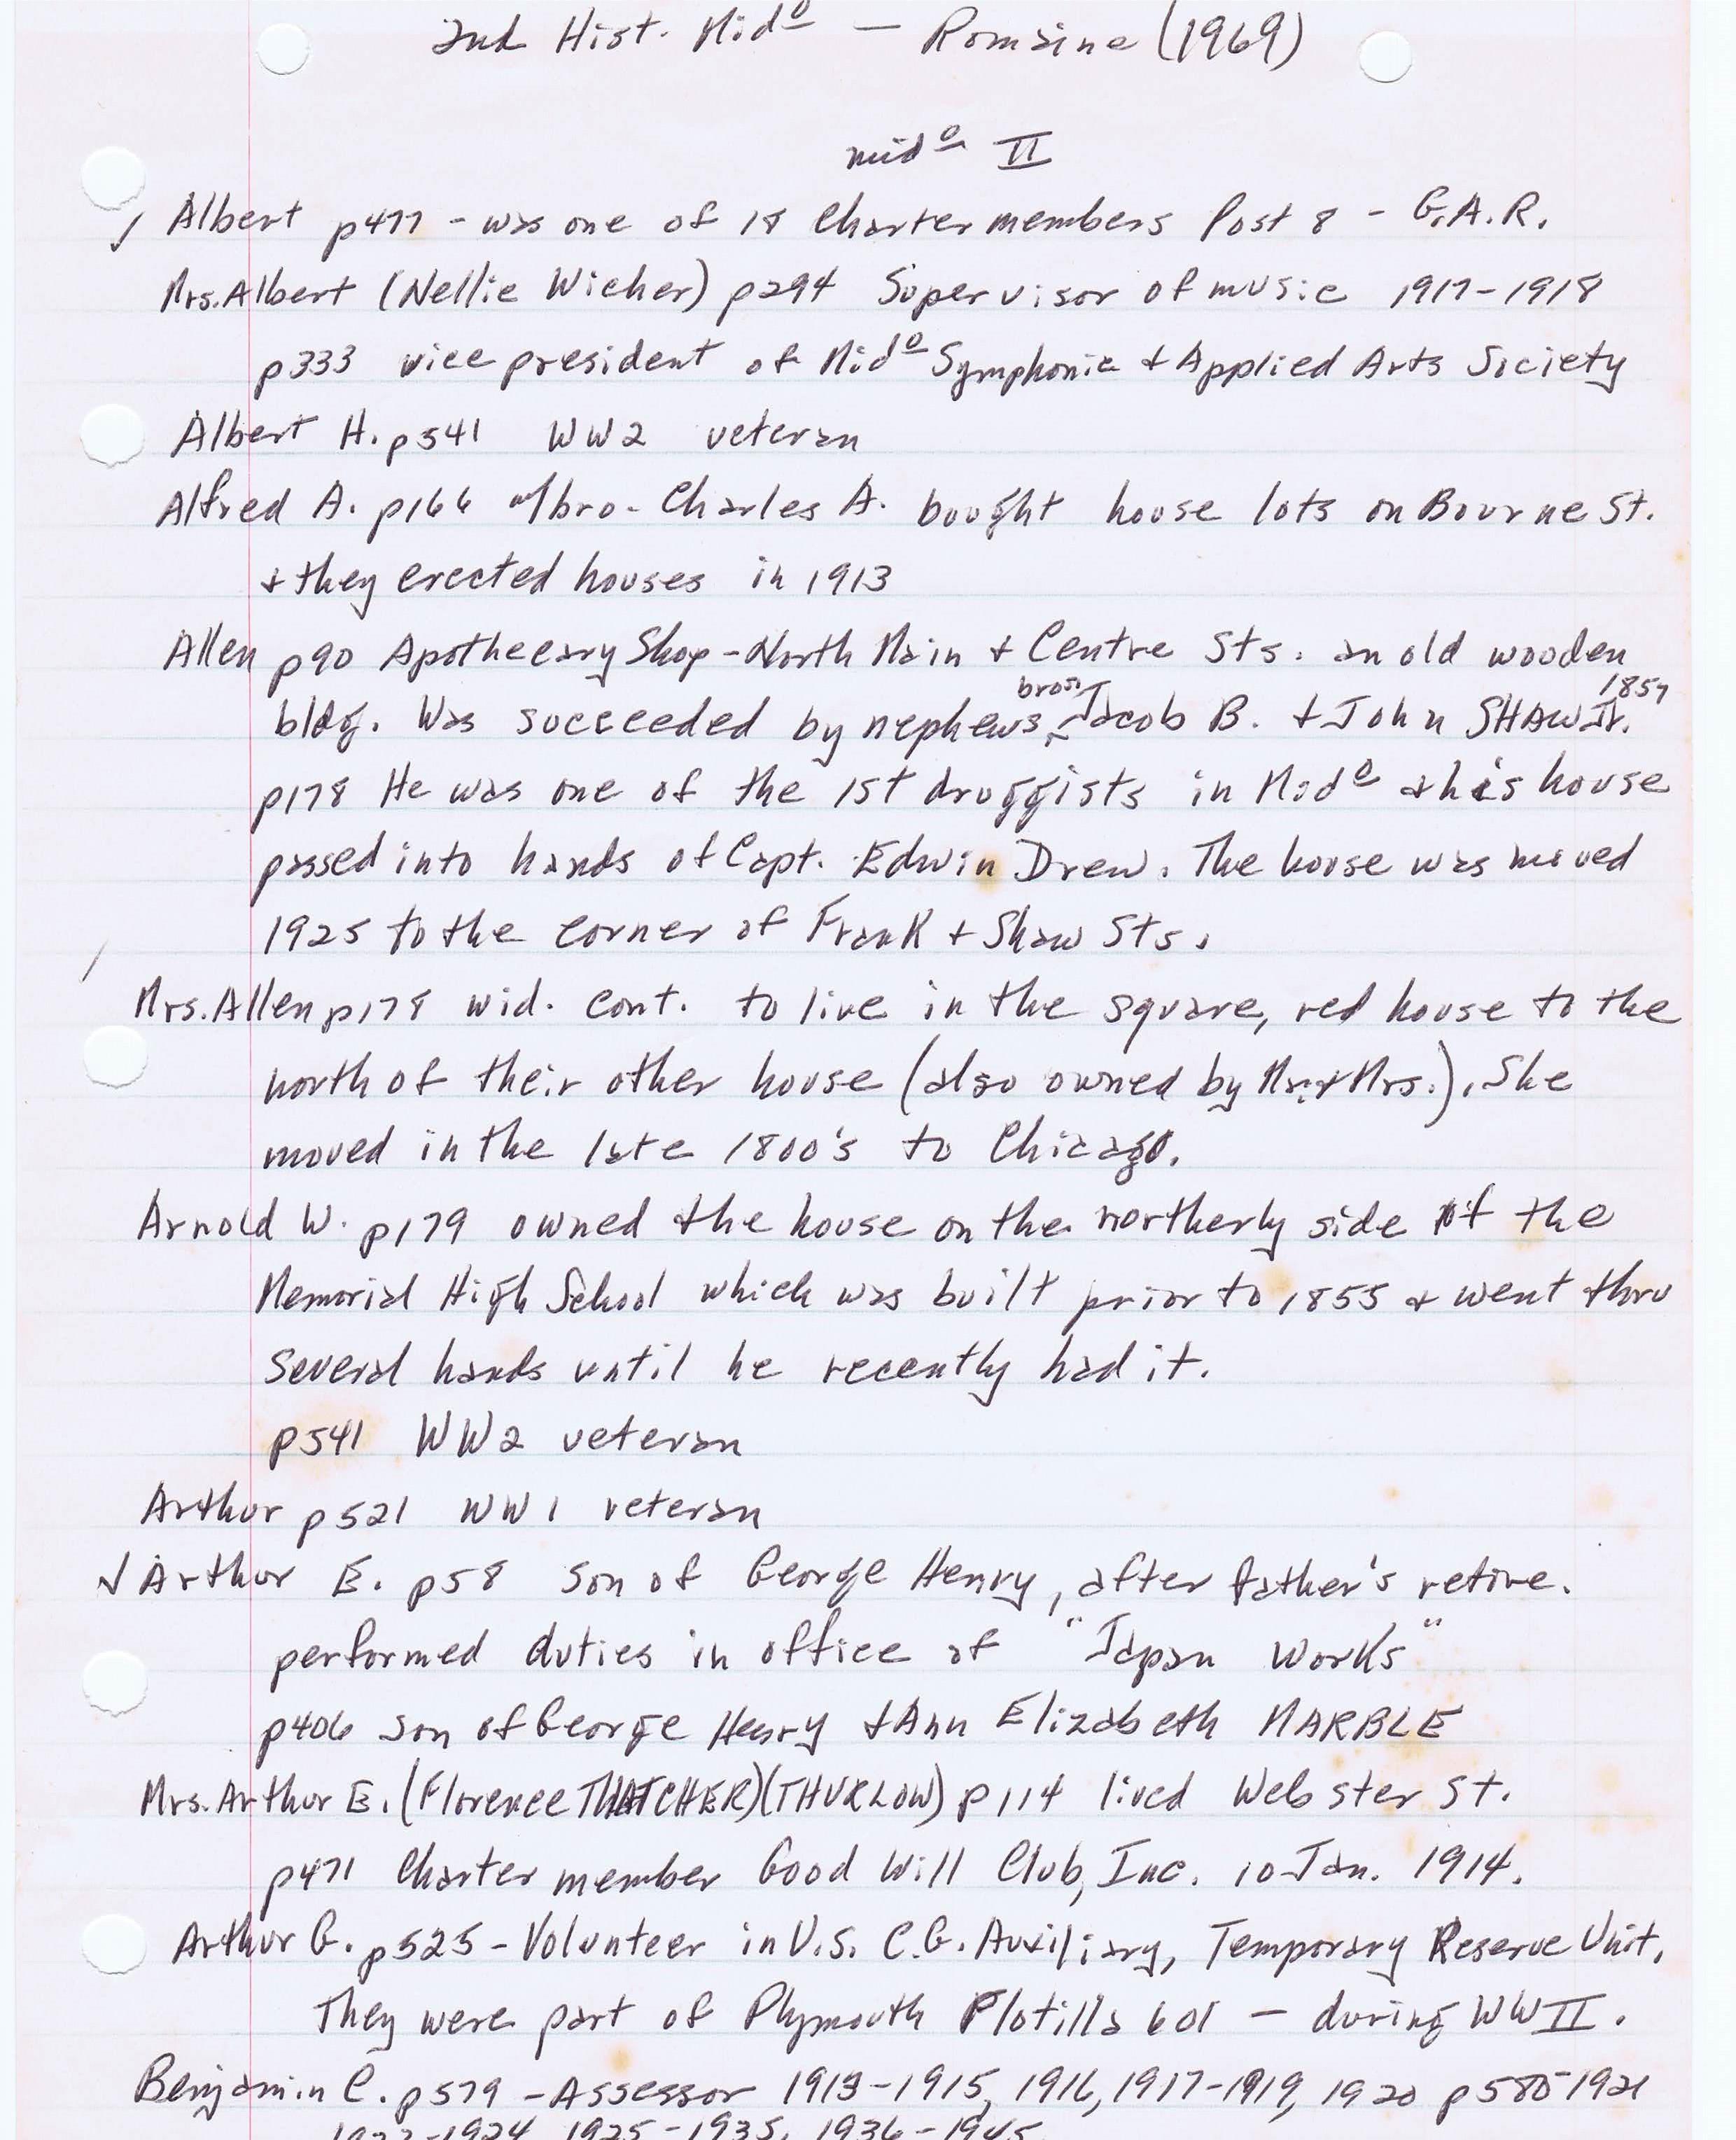 2nd Hist. Mid⁰ — Romaine (1969)
mid⁰ II
✓ Albert p477 - was one of 18 Charter members Post 8 - G.A.R.
Mrs. Albert (Nellie Wicher) p294 Supervisor of music 1917-1918
p333 vice president of Mid⁰ Symphonic + Applied Arts Society
Albert H. p541 WW2 veteran
Alfred A. p166 w/bro. Charles A. bought house lots on Bourne St.
+ they erected houses in 1913
Allen p90 Apothecary Shop - North Main + Centre Sts. an old wooden
bldg. Was succeeded by nephews, bros. Jacob B. + John SHAW Jr. 1857
p178 He was one of the 1st druggists in Mid⁰ + his house
passed into hands of Capt. Edwin Drew. The house was moved
1925 to the corner of Frank + Shaw Sts.
/ Mrs. Allen p178 wid. cont. to live in the square, red house to the
north of their other house (also owned by Mr. + Mrs.). She
moved in the late 1800's to Chicago.
Arnold W. p179 owned the house on the northerly side of the
Memorial High School which was built prior to 1855 + went thru
several hands until he recently had it.
p541 WW2 veteran
Arthur p521 WW1 veteran
✓ Arthur E. p58 son of George Henry, after father's retire.
performed duties in office of "Japan Works"
p406 son of George Henry + Ann Elizabeth MARBLE
Mrs. Arthur E. (Florence THATCHER) (THURLOW) p114 lived Webster St.
p471 Charter member Good Will Club, Inc. 10 Jan. 1914.
Arthur G. p525 - Volunteer in U.S. C.G. Auxiliary, Temporary Reserve Unit,
They were part of Plymouth Flotilla 601 — during WWII.
Benjamin C. p579 - Assessor 1913-1915, 1916, 1917-1919, 1920 p580 1921
1922-1924, 1925-1935, 1936-1945.